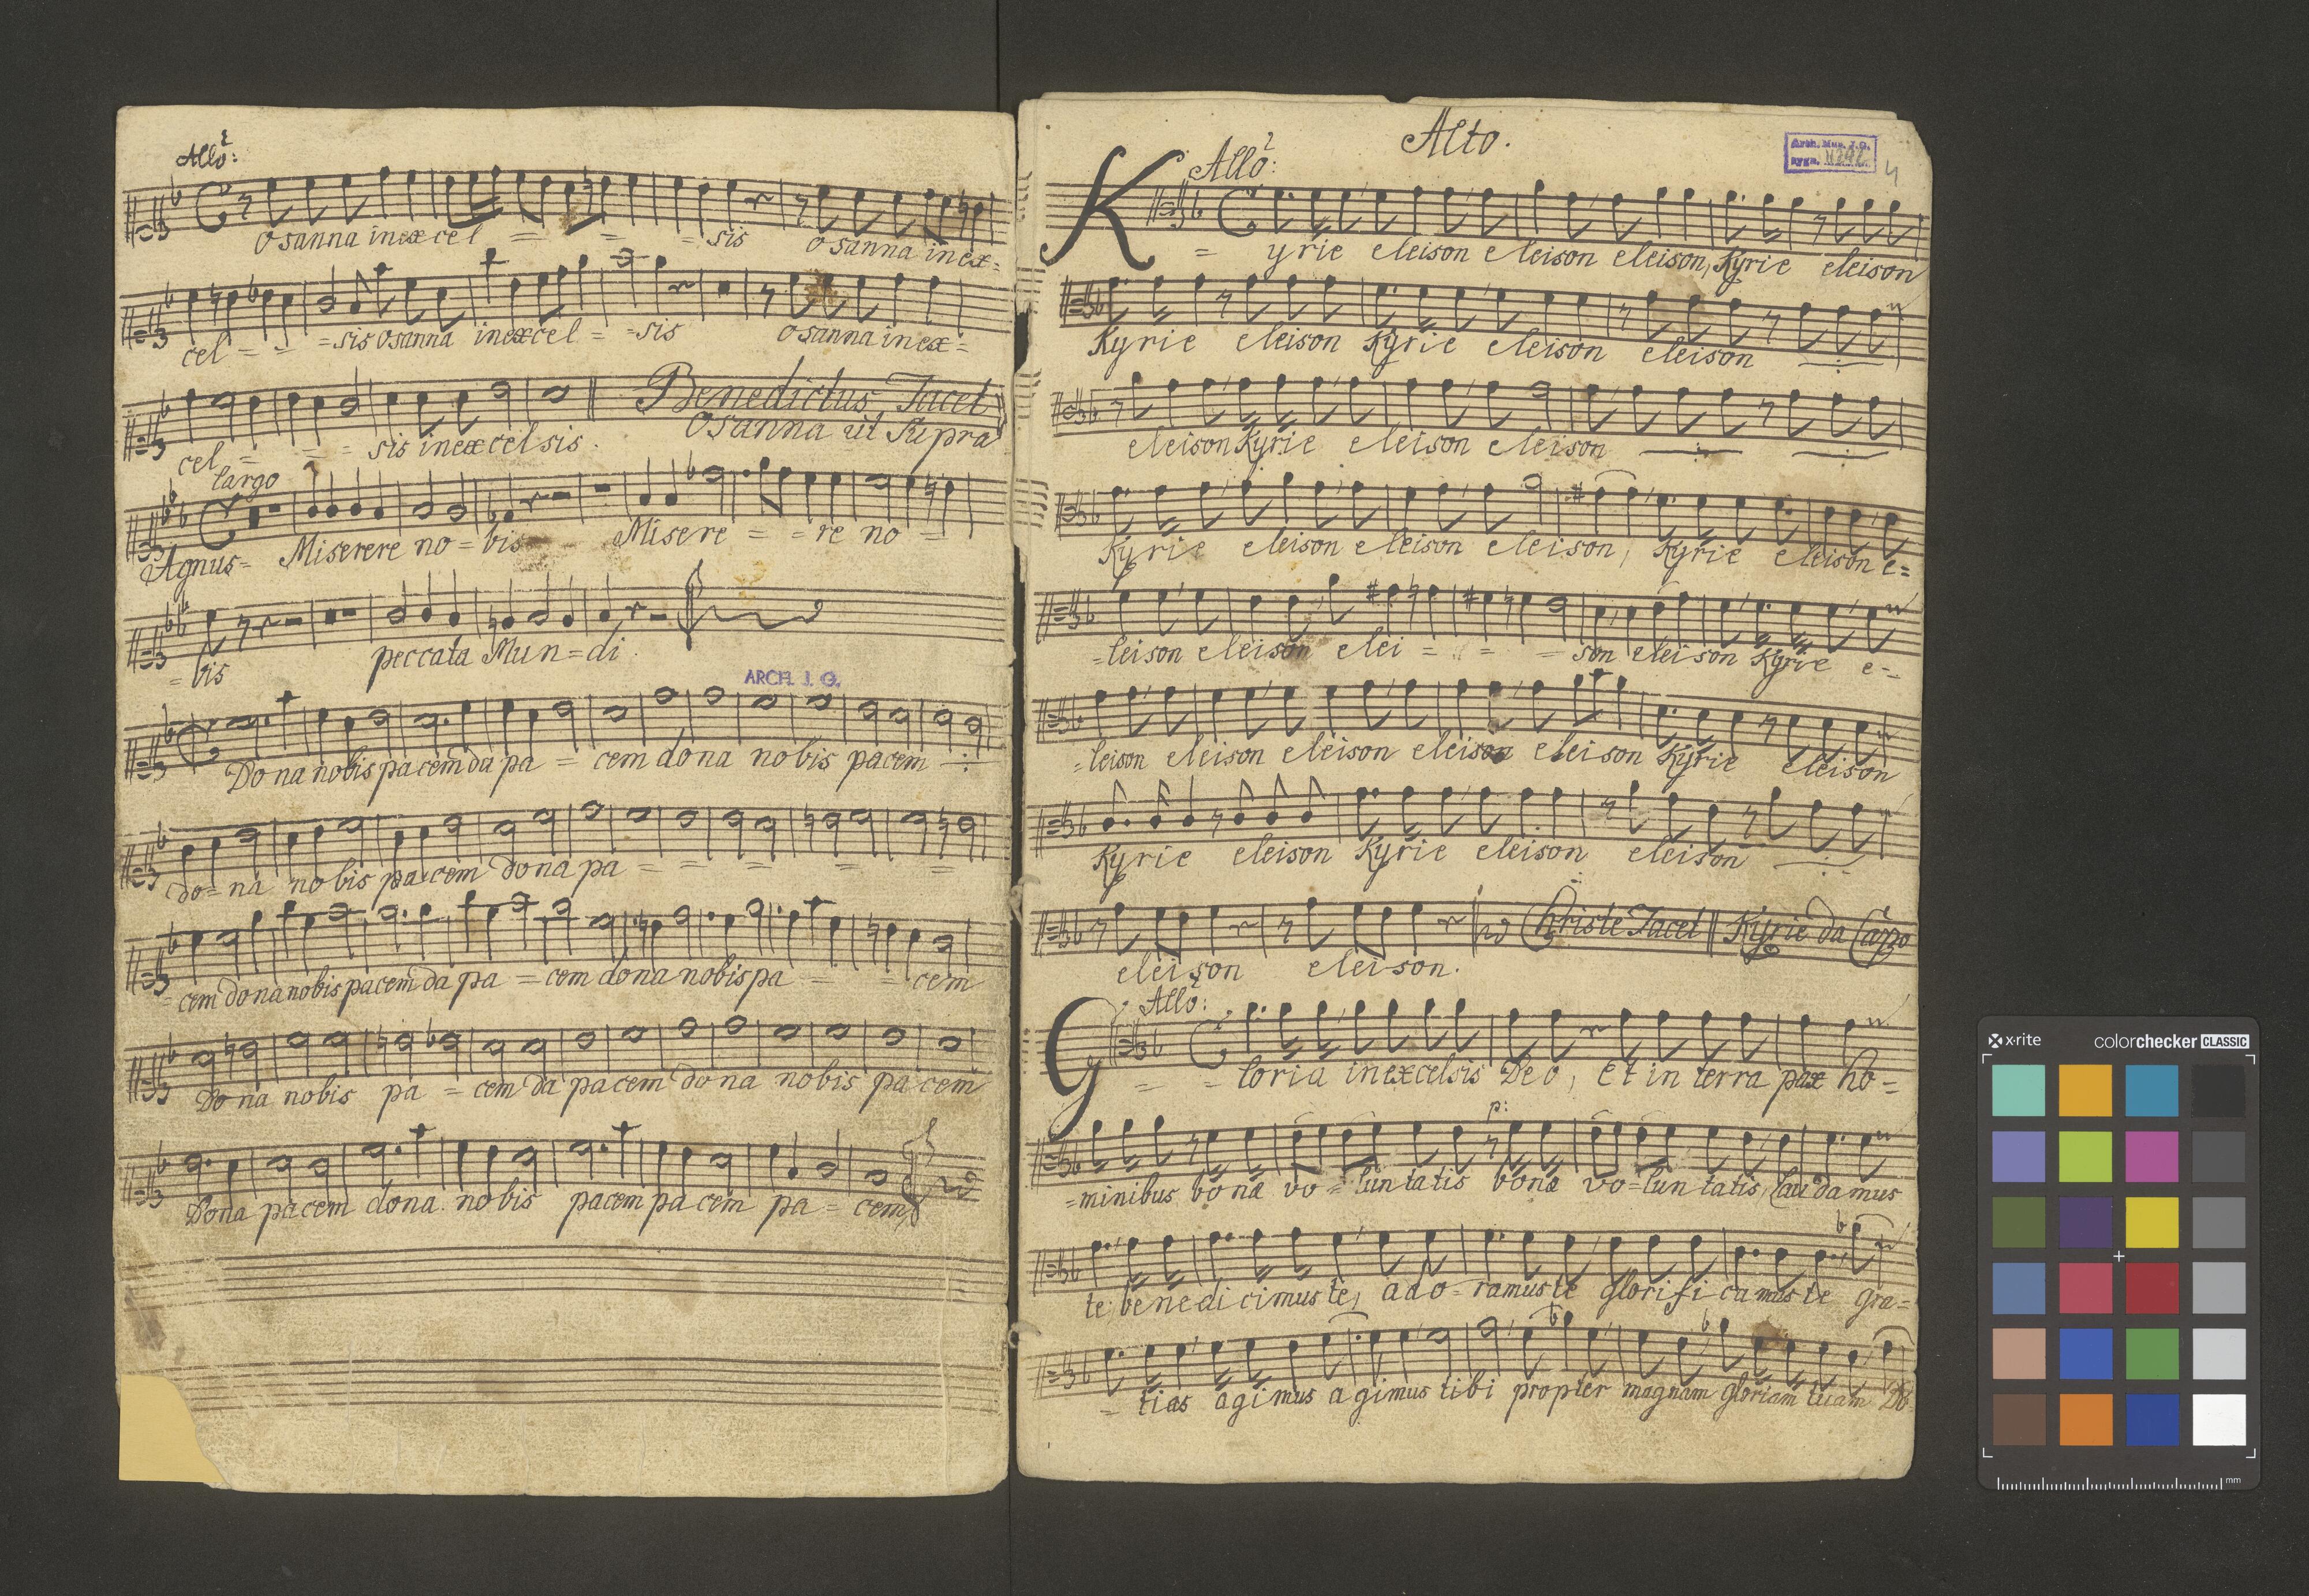 Allo:
Osanna in excel = = = sis osanna in ex=
cel = = = sis Osanna in excel = = sis osanna in ex=
cel = = = sis in excelsis. Benedictus Tacet
Osanna ut Supra
largo
Agnus= Miserere no = bis Misere = = re no =
= bis peccata Mun = di.
ARCH. J. G.
Dona nobis pacem da pa = cem dona nobis pacem
do = na nobis pacem dona pa = = = = = =
= cem dona nobis pacem da pa = cem dona nobis pa = = cem
Dona nobis pa = cem da pacem dona nobis pacem
Dona pacem dona nobis pacem pacem pa = cem
Alto.
Arch. Mus. J. G.
sygn.
4
Allo:
K = yrie eleison eleison eleison, Kyrie eleison
Kyrie eleison Kyrie eleison eleison
eleison Kyrie eleison eleison
Kyrie eleison eleison eleison, Kyrie eleison e=
=leison eleison elei = = = son eleison Kyrie e=
=leison eleison eleison eleison eleison Kyrie eleison
Kyrie eleison Kyrie eleison eleison
Christe Tacet Kyrie da Capo
eleison eleison.
Allo:
G = = loria in excelsis Deo, Et in terra pax ho=
p:
=minibus bonæ vo = luntatis bonæ vo = luntatis, laudamus
te, benedicimus te, ado = ramus te glorificamus te gra=
= tias agimus agimus tibi propter magnam gloriam tuam Do
x-rite
colorchecker CLASSIC
mm